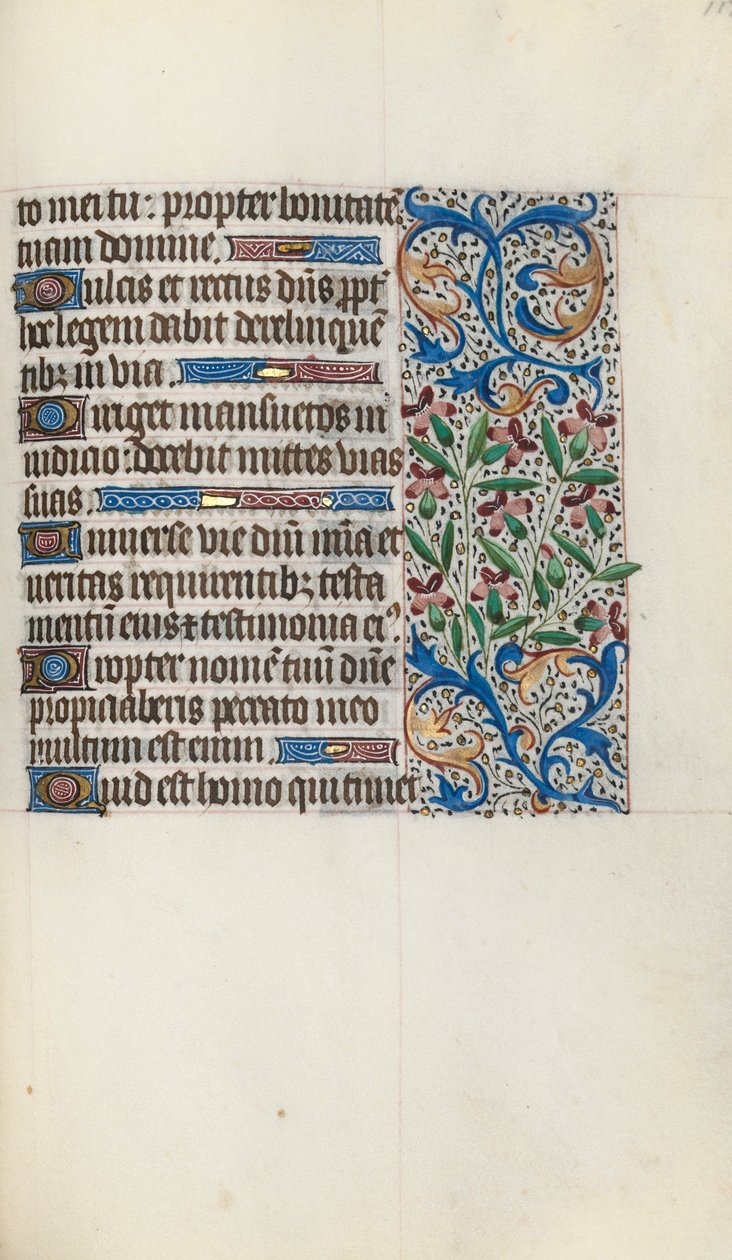 to mei tu : propter bonitatē
tuam domine.
Dulcis et rectus dn̄s ꝓpt̄
hoc legem dabit derelinquē
tibꝫ in via.
Diriget mansuetos in
iudicio : docebit mittes vias
suas.
Uniuerse vie dn̄i mīa et
ueritas requirentibꝫ testa
mentū eius ⁊ testimonia eiꝰ
Propter nomē tuū dn̄e
propiciaberis peccato meo
multum est enim.
Quid est homo qui timet